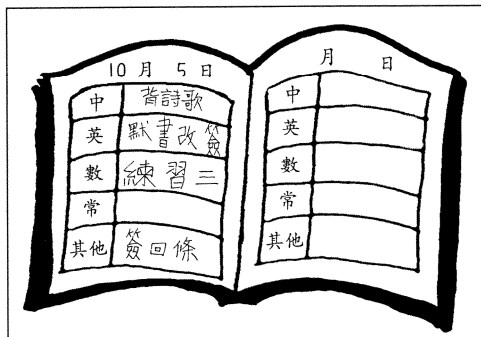 10月5日
中 背詩歌
英 默書改簽
數 練習三
常
其他 簽回條
月 日
中
英
數
常
其他